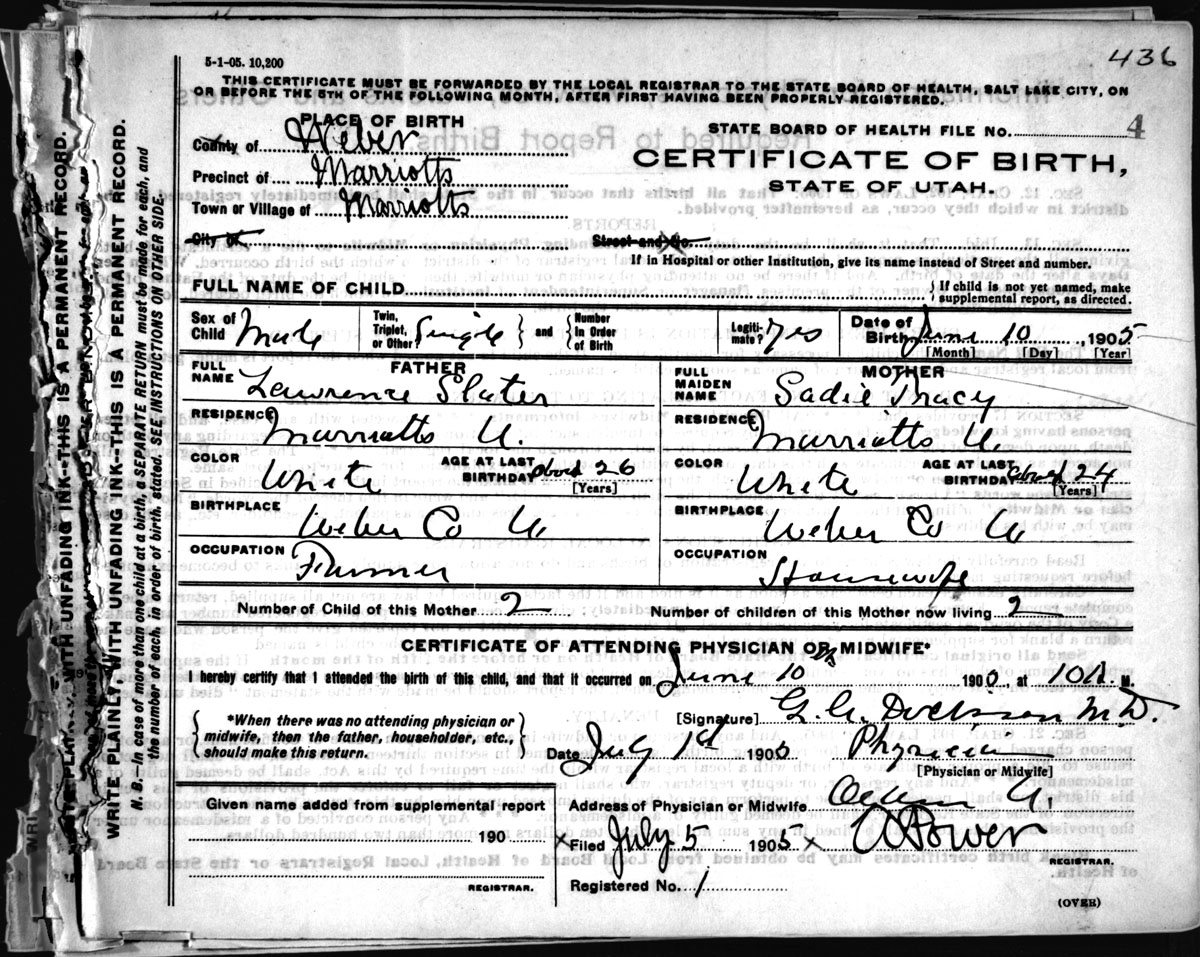 436
5-1-05. 10,200
THIS CERTIFICATE MUST BE FORWARDED BY THE LOCAL REGISTRAR TO THE STATE BOARD OF HEALTH, SALT LAKE CITY, ON
OR BEFORE THE 5TH OF THE FOLLOWING MONTH, AFTER FIRST HAVING BEEN PROPERLY REGISTERED.
PLACE OF BIRTH
County of Weber
Precinct of Marriotts
Town or Village of Marriotts
City of
STATE BOARD OF HEALTH FILE NO. 4
CERTIFICATE OF BIRTH,
STATE OF UTAH.
Street and No.
If in Hospital or other Institution, give its name instead of Street and number.
FULL NAME OF CHILD
} If child is not yet named, make
supplemental report, as directed.
Sex of Child Male
Twin, Triplet, or Other Single } and { Number In Order of Birth
Legitimate? Yes
Date of Birth June 10, 1905
[Month] [Day] [Year]
FATHER
FULL NAME Lawrence Slater
RESIDENCE Marriotts U.
COLOR White
AGE AT LAST BIRTHDAY about 26
[Years]
BIRTHPLACE Weber Co U
OCCUPATION Farmer
MOTHER
FULL MAIDEN NAME Sadie Tracy
RESIDENCE Marriotts U.
COLOR White
AGE AT LAST BIRTHDAY about 24
[Years]
BIRTHPLACE Weber Co U
OCCUPATION Housewife
Number of Child of this Mother 2
Number of children of this Mother now living 2
CERTIFICATE OF ATTENDING PHYSICIAN OR MIDWIFE*
I hereby certify that I attended the birth of this child, and that it occurred on June 10 1905, at 10 A. M.
{ *When there was no attending physician or
midwife, then the father, householder, etc.,
should make this return. }
[Signature] M.D.
Date July 1st 1905 Physician
[Physician or Midwife]
Given name added from supplemental report
190
REGISTRAR.
Address of Physician or Midwife Ogden U.
x Filed July 5 1905 x A Power
REGISTRAR.
Registered No. 1
(OVER)
WRITE PLAINLY WITH UNFADING INK--THIS IS A PERMANENT RECORD.
N. B.--In case of more than one child at a birth, a SEPARATE RETURN must be made for each, and
the number of each, in order of birth, stated. SEE INSTRUCTIONS ON OTHER SIDE.
WITH UNFADING INK--THIS IS A PERMANENT RECORD.